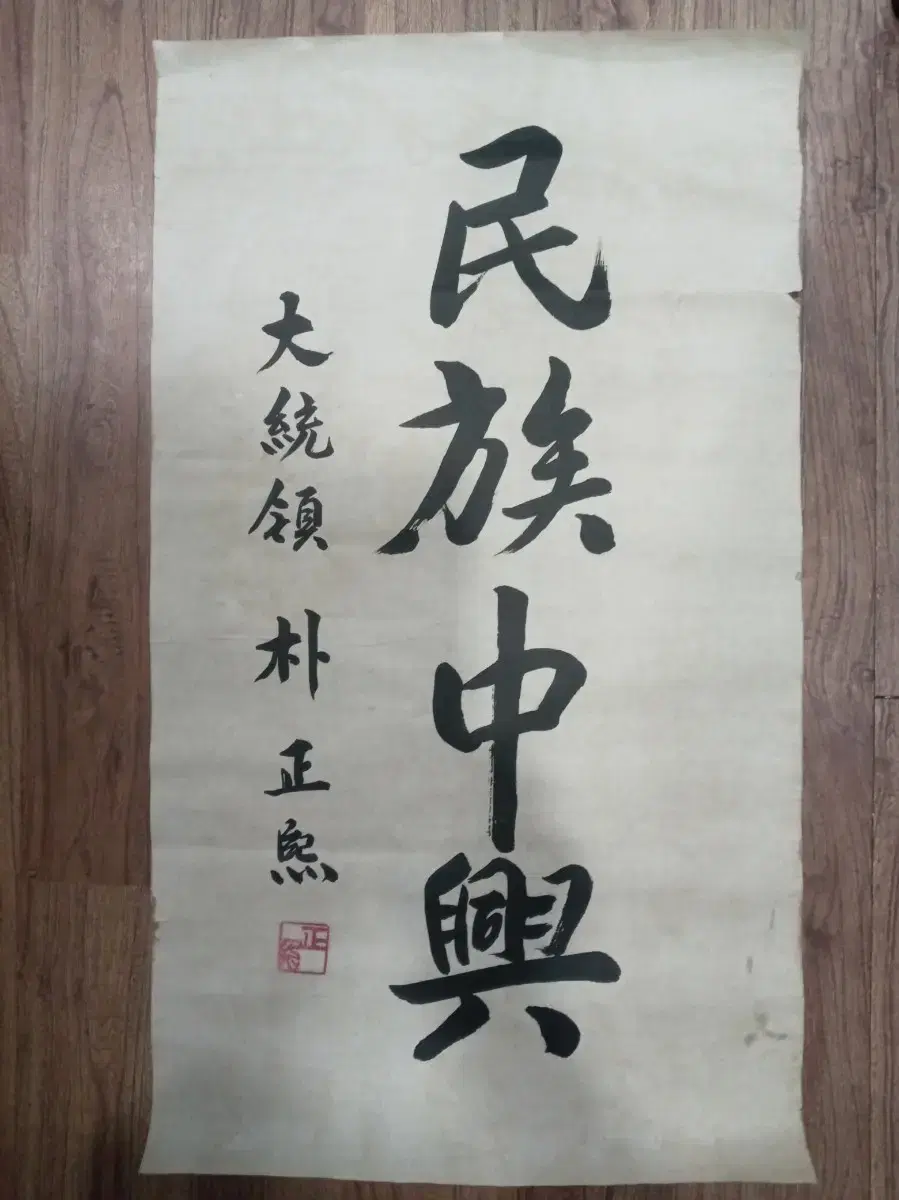 民族中興
大統領 朴正熙
正熙